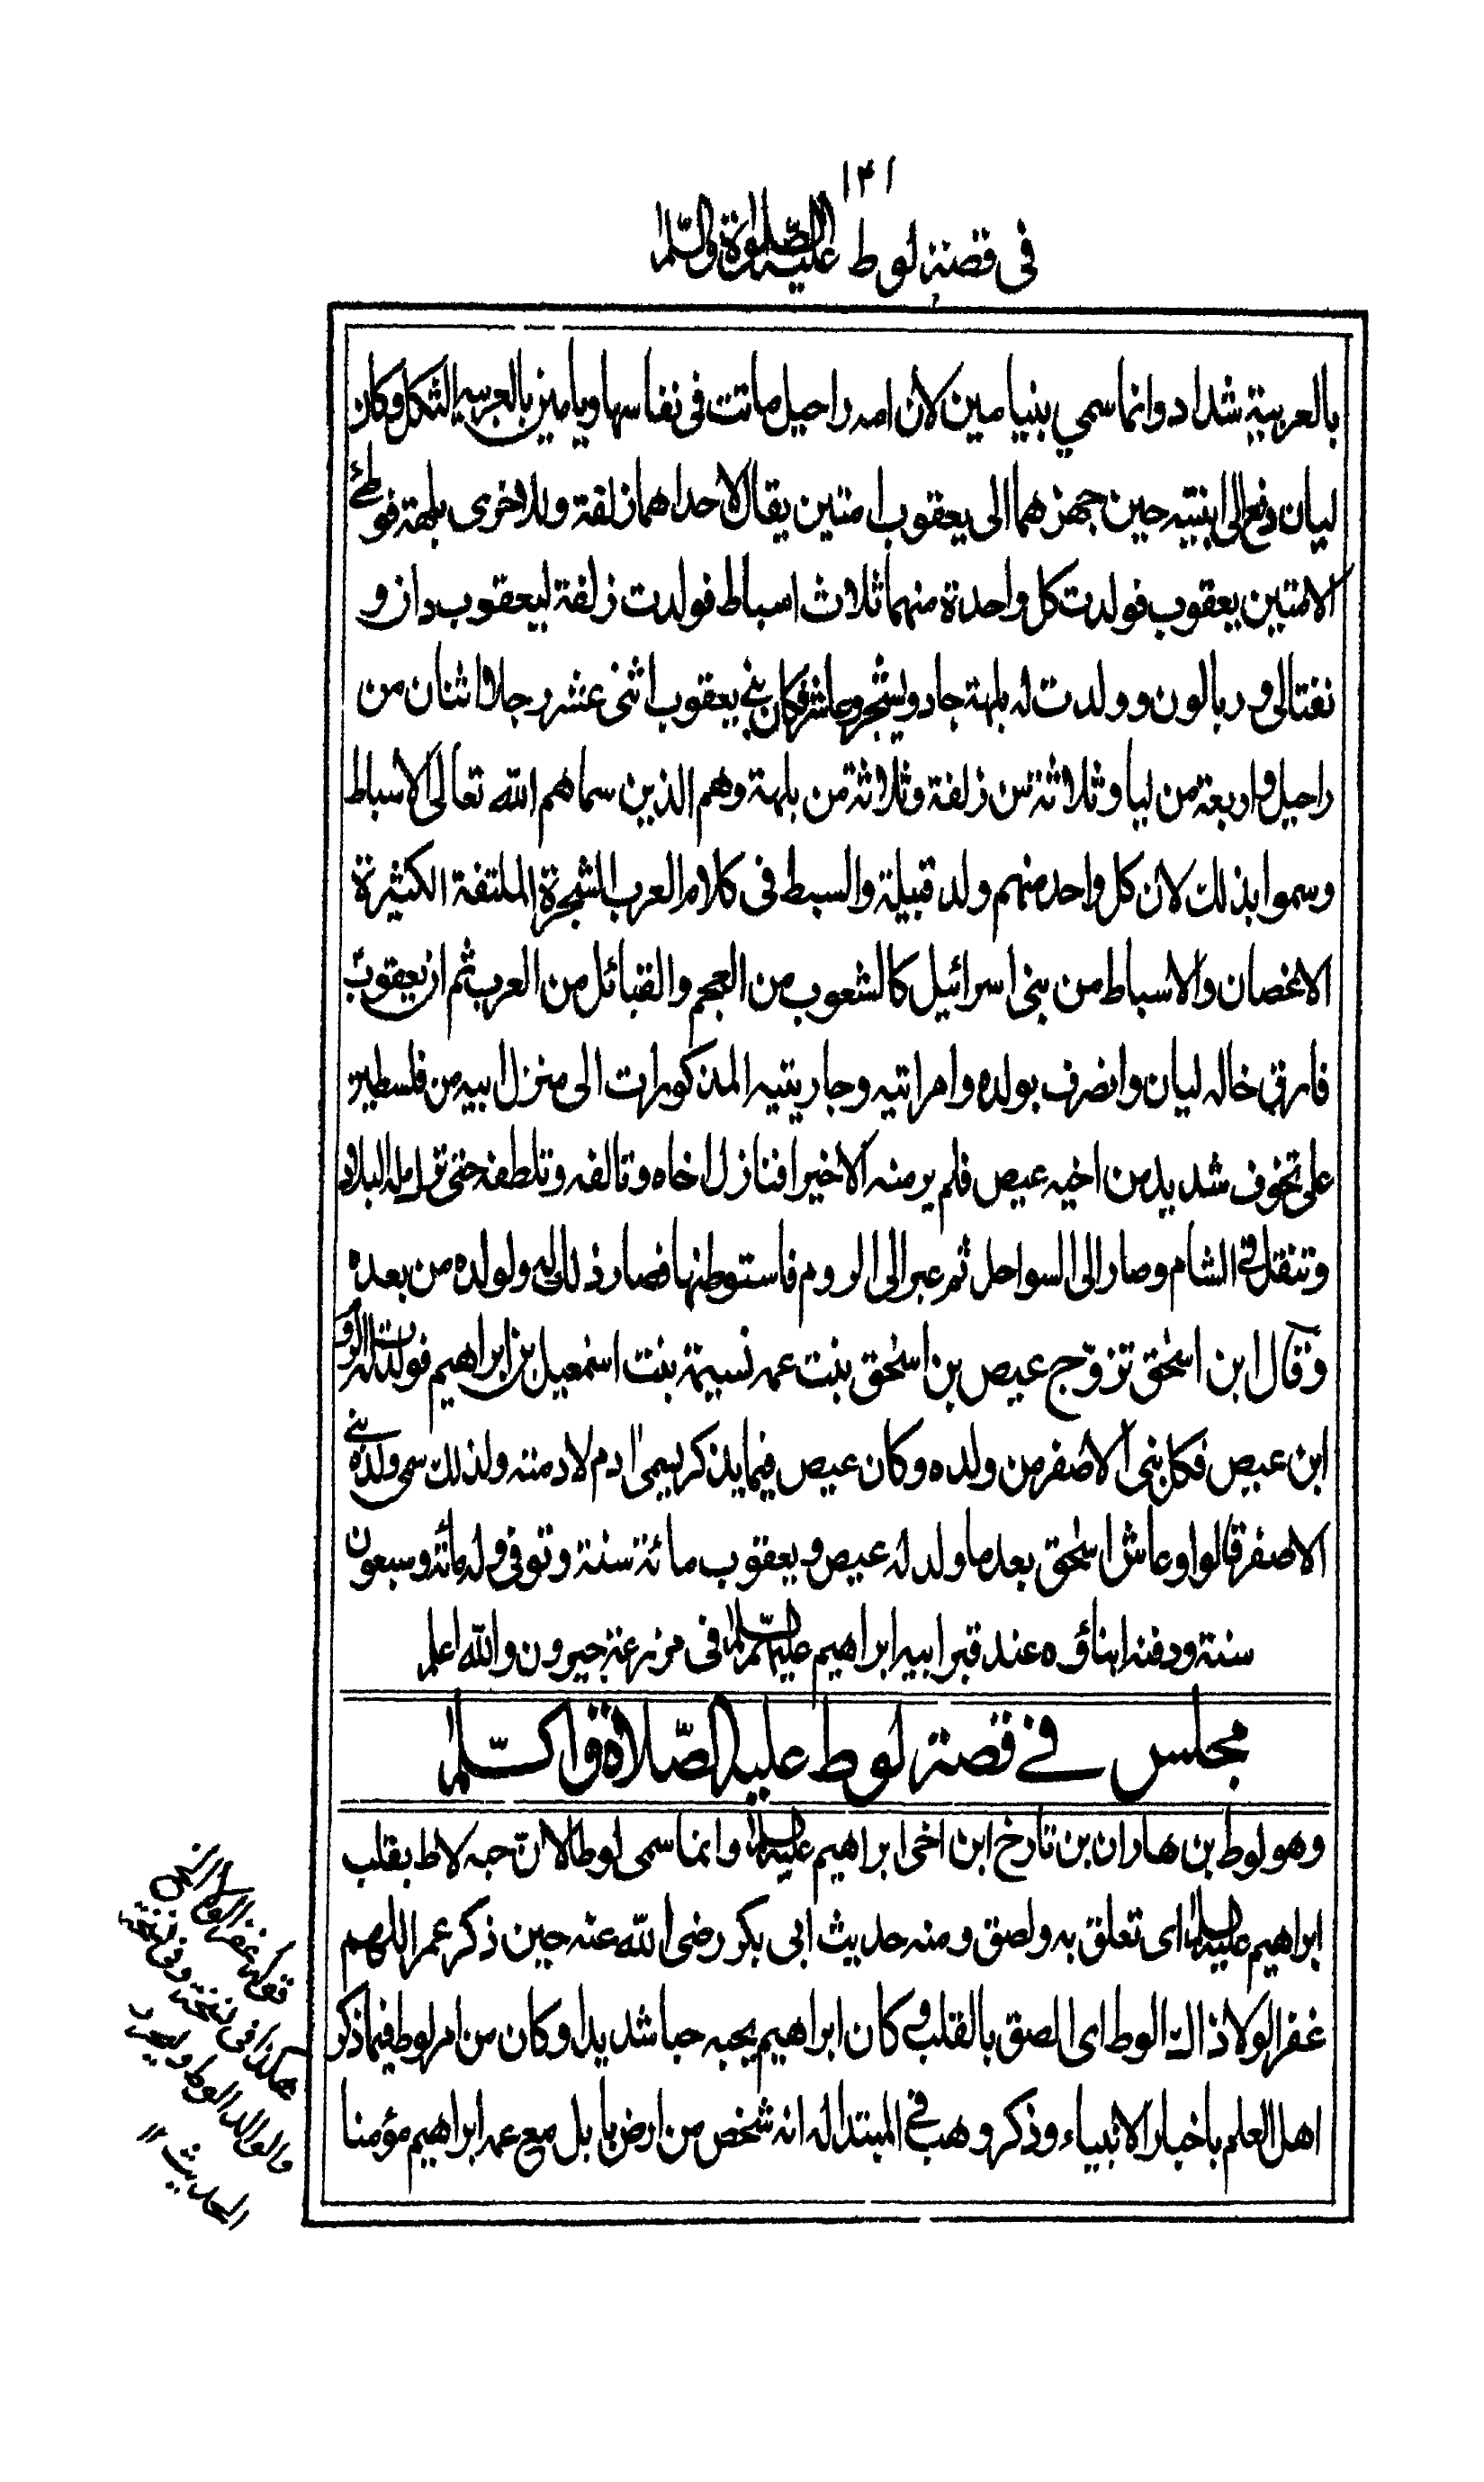 ١٣١
فى قصة لوط عليه الصلوة والسلام
بالعربية شداد وانما سمي بنيامين لان امه راحيل ماتت فى نفاسها ويامين بالعربيه الثكل وكان
ليان دفع الى ابنتيه حين جهزهما الى يعقوب امتين يقال لاحداهما زلفة وللاخرى بلهة فوطئ
الامتين يعقوب فولدت كل واحدة منهما ثلاث اسباط فولدت زلفة ليعقوب دان و
نفتالى و ربالون و ولدت له بلهة جاد ويشجر وعاشر فكان بنے يعقوب اثنى عشر رجلا اثنان من
راحيل واربعة من ليا وثلاثة من زلفة وثلاثة من بلهة وهم الذين سماهم الله تعالى الاسباط
وسموا بذلك لان كل واحد منهم ولد قبيلة والسبط فى كلام العرب الشجرة الملتفة الكثيرة
الاغصان والاسباط من بنى اسرائيل كالشعوب من العجم والقبائل من العرب ثم ان يعقوب
فارق خاله ليان وانصرف بولده وامراتيه وجاريتيه المذكورات الى منزل ابيه من فلسطين
على تخوف شديد من اخيه عيص فلم ير منه الا خيرا فنازل اخاه وتالفه وتلطفه حتى ترك له البلاد
وتنقل فى الشام وصار الى السواحل ثم عبر الى الروم فاستوطنها فصار ذلك له ولولده من بعده
وقال ابن اسحٰق تزوّج عيص بن اسحٰق بنت عمه نسيمة بنت اسمٰعيل بن ابراهيم فولدت له الروم
ابن عيص فكل بنى الاصفر من ولده وكان عيص فيما يذكر يسمى ادم لادمته ولذلك سمى ولده بنے
الاصفر قالوا وعاش اسحٰق بعد ما ولد له عيص ويعقوب مائة سنة وتوفى وله مائة وسبعون
سنة ودفنه ابناؤه عند قبر ابيه ابراهيم عليهم السلام فى مزرعة جيرون والله اعلم
مجلس فے قصة لوط عليه الصّلاة والسّلام
وهو لوط بن هاران بن تارخ ابن اخى ابراهيم عليه السلام وانما سمى لوطا لانّ حبه لاط بقلب
ابراهيم عليه السلام اى تعلق به ولصق ومنه حديث ابى بكر رضى الله عنه حين ذكر عمر اللهم
غفرا لولا ذاك الوط اى الصق بالقلب و كان ابراهيم يحبه حبا شديدا وكان من امر لوط فيما ذكر
اهل العلم باخبار الانبياء وذكر وهب فے المبتدا انه شخص من ارض بابل مع عمه ابراهيم مؤمنا
هكذا فى نسخة وفى نسخة
والوالد الوط
الحديث ١٢